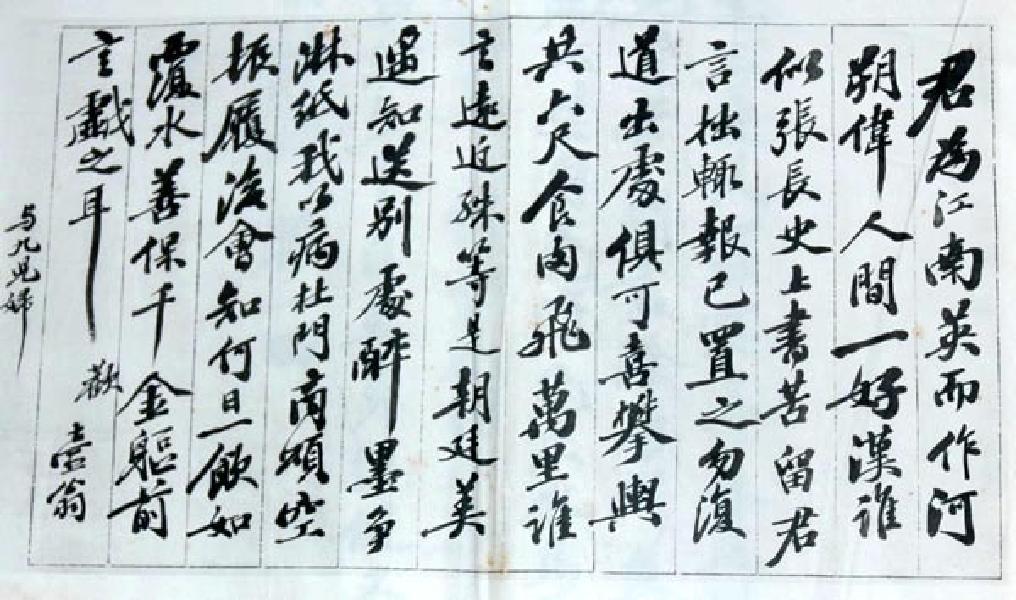 君為江南英而作河
朔偉人間一好漢誰
似張長史上書苦留君
言拙輒報已置之勿復
道出處俱可喜攀輿
共六尺食肉飛萬里誰
言遠近殊等是朝廷美
遥知送別處醉墨爭
淋紙我以病杜門商頌空
振履後會知何日一飲如
覆水善保千金軀前
言戲之耳 歡 壺翁